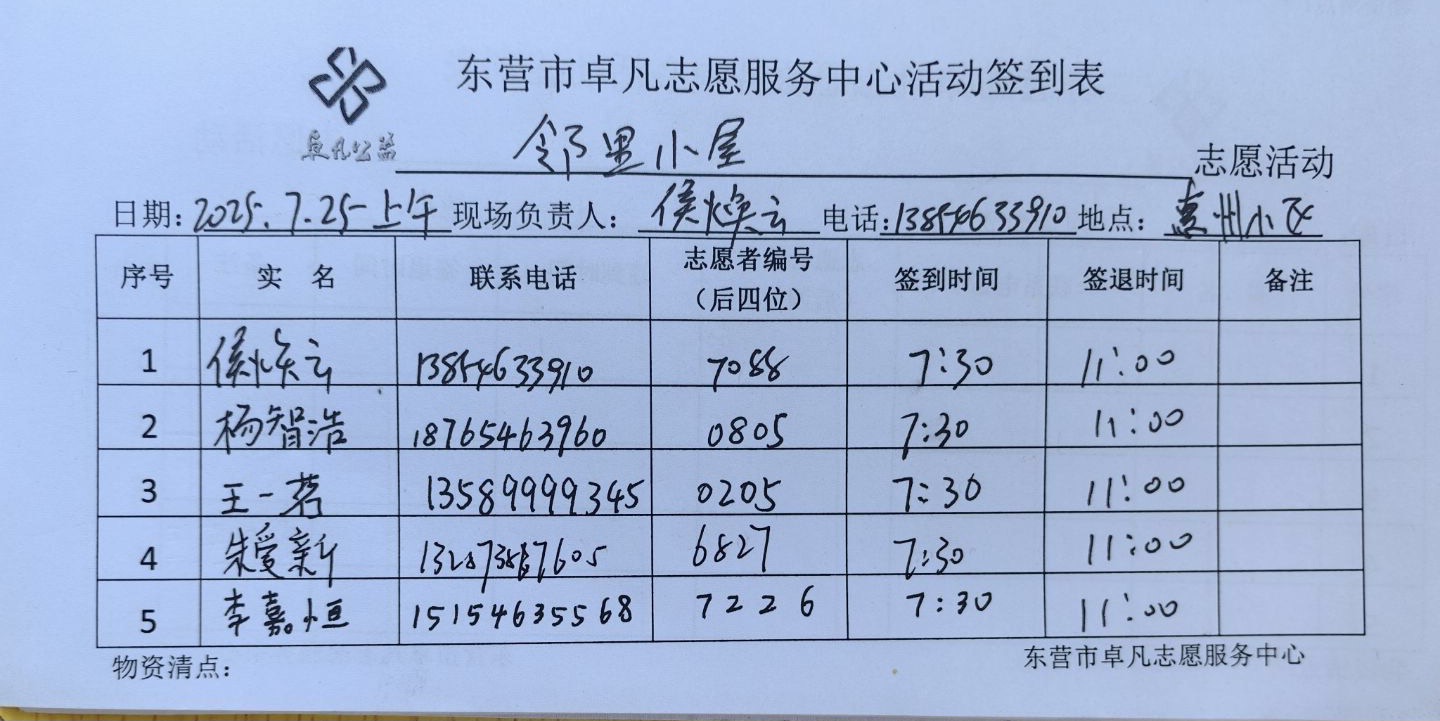 东营市卓凡志愿服务中心活动签到表
卓凡公益 邻里小屋 志愿活动
日期: 2025.7.25 上午 现场负责人: 侯焕云 电话: 13854633910 地点: 惠州小区
序号 实 名 联系电话 志愿者编号（后四位） 签到时间 签退时间 备注
1 侯焕云 13854633910 7088 7:30 11:00
2 杨智浩 18765463960 0805 7:30 11:00
3 王一茗 13589999345 0205 7:30 11:00
4 朱爱新 6827 7:30 11:00
5 李嘉恒 15154635568 7226 7:30 11:00
物资清点： 东营市卓凡志愿服务中心